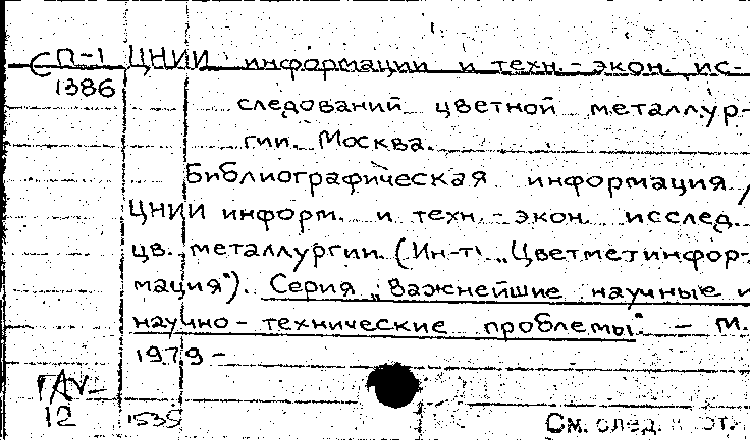 СП-1 ЦНИИ информации и техн.-экон. ис-
1386
следований цветной металлур-
гии. Москва.
Библиографическая информация /
ЦНИИ информ. и техн.-экон. исслед.
цв. металлургии. (Ин-т „Цветметинфор-
мация"). Серия „Важнейшие научные и
научно-технические проблемы". - М.
1979-
12 1535
См. след.